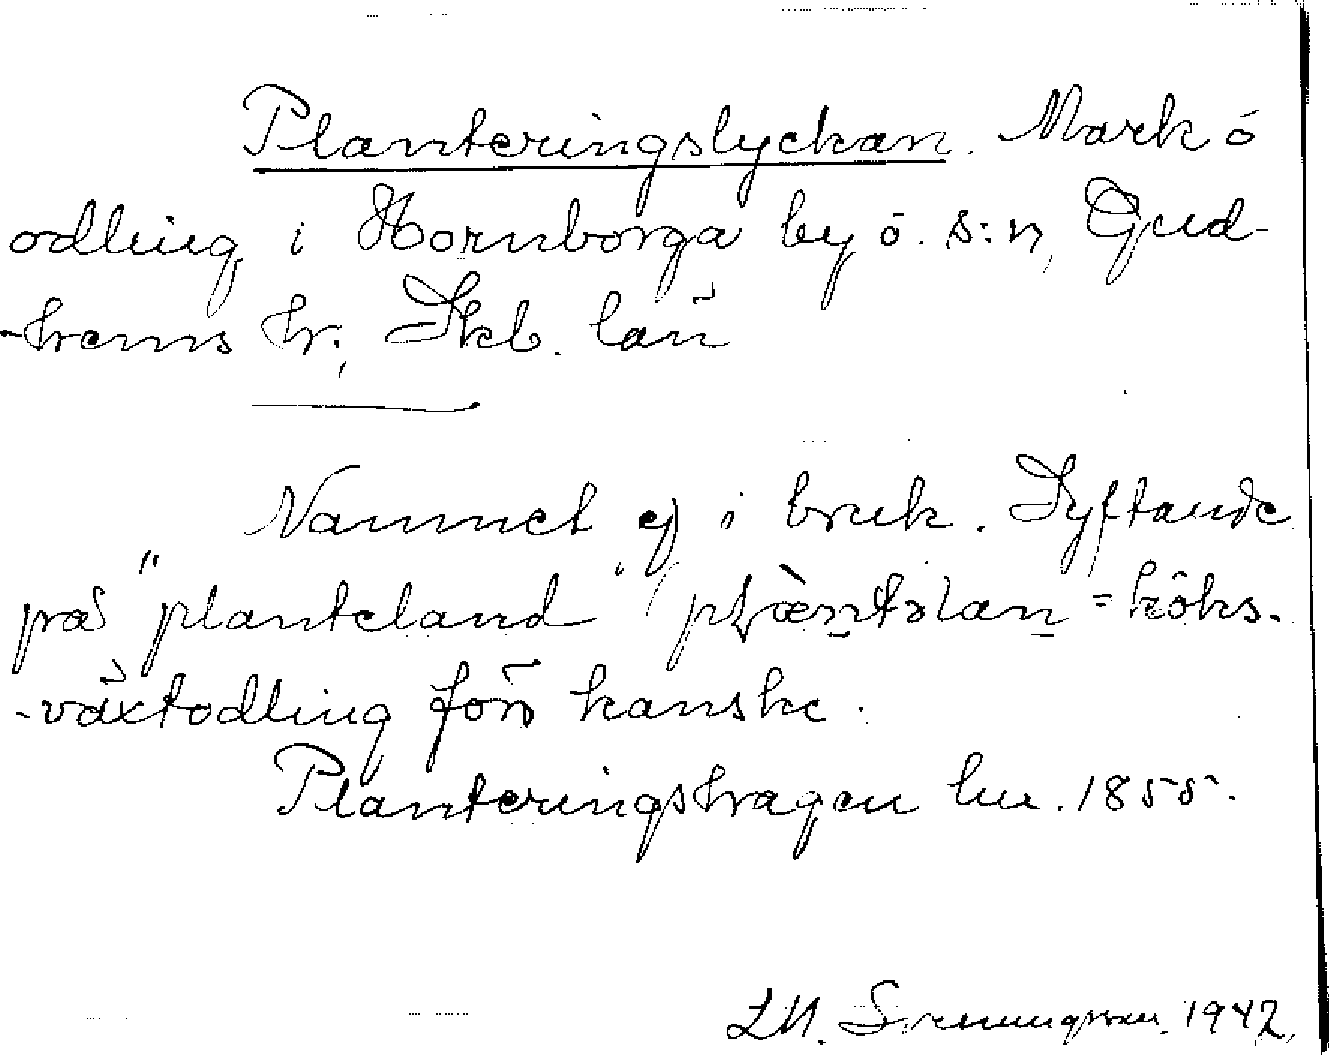 Planteringslyckan. Mark o
odling i Hornborga by o. s:n, Gud-
-hems hr., Skb. län
Namnet ej i bruk. Syftande
på "planteland" = köks-
-växtodling förr kanske.
Planteringshagen lm. 1855.
1942